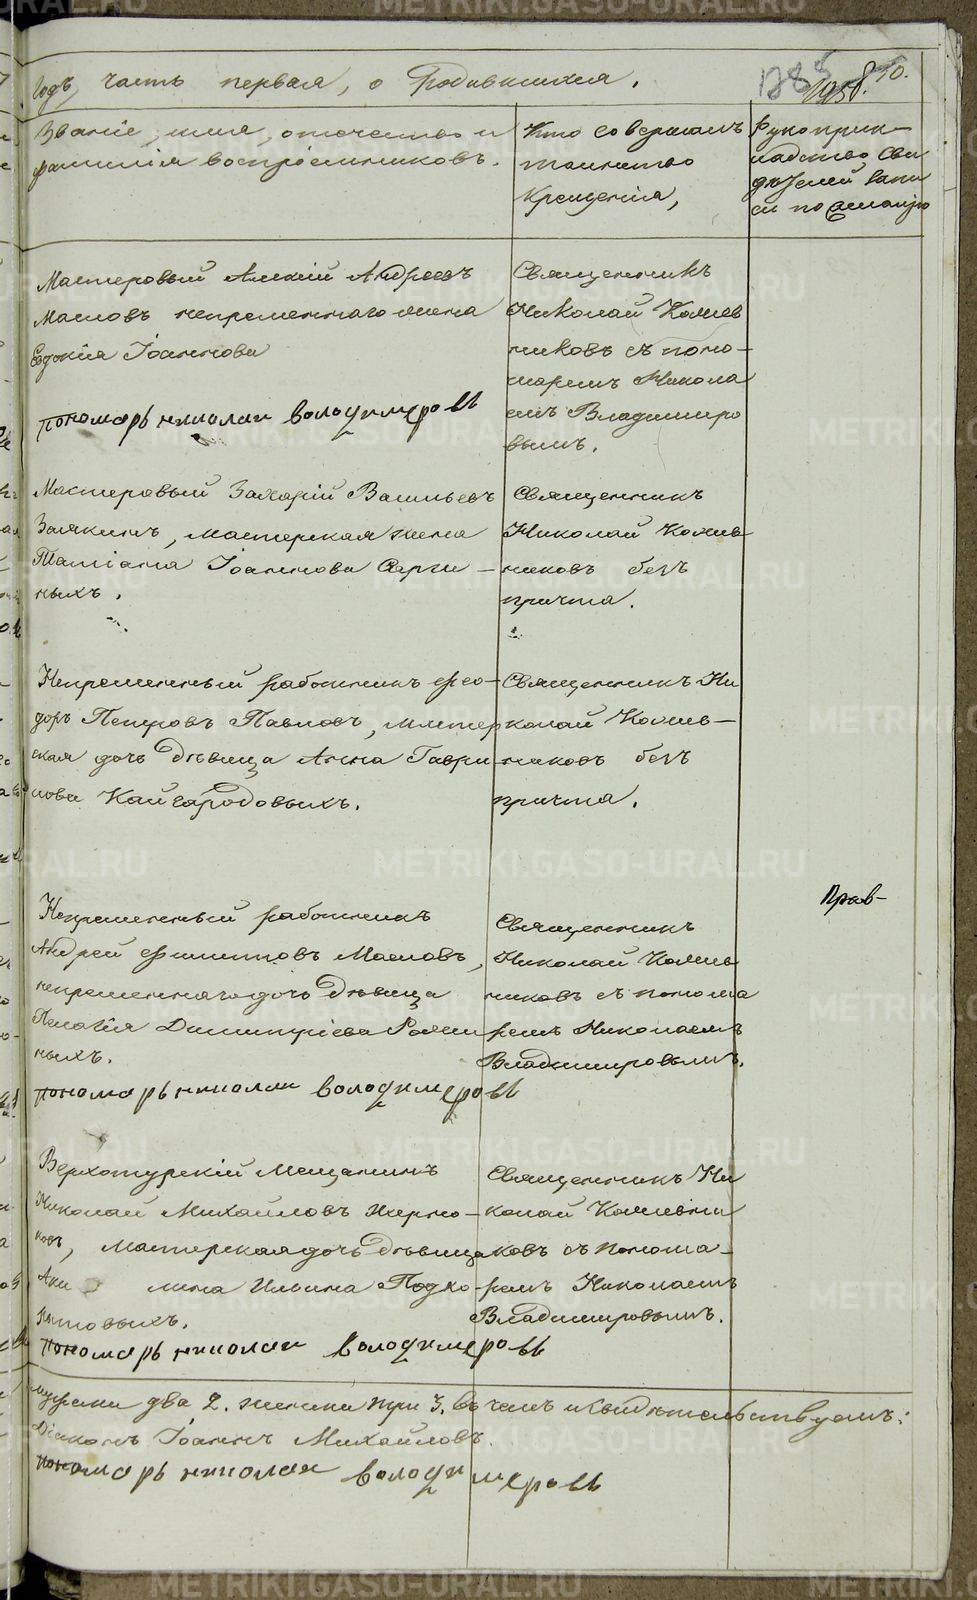 Годъ, часть первая, о Родившихся.
1958.
Званіе, имя, отечество и
фамилія воспріемниковъ.
Кто совершалъ
таинство
крещенія,
Рукоприк-
ладство сви
дѣтелей запи
си по желанію
Мастеровый Алексій Андреевъ
Масловъ непременнаго жена
Евдокія Іоаннова
пономарь николаи володимеровъ
Священникъ
Николай Кожев
никовъ съ поно-
маремъ Никола
емъ Владимиро
вымъ.
Мастеровый Захарій Васильевъ
Залякинъ, мастерская жена
Татіана Іоаннова Серги-
ныхъ.
Священникъ
Николай Кожев
никовъ безъ
причта.
Непременный работникъ Фео-
доръ Петровъ Павловъ, мастер
ская дочь дѣвица Анна Гаври
лова Кайгародовыхъ.
Священникъ Ни
колай Кожев-
никовъ безъ
причта.
Непременный работникъ
Андрей Филипповъ Масловъ,
непременнаго дочь дѣвица
Пелагія Димитріева
ныхъ.
пономарь николаи володимеровъ
Священникъ
Николай Кожев
никовъ съ понома
ремъ Николаемъ
Владимировымъ.
Прав-
Верхотурскій Мещанинъ
Николай Михайловъ
ковъ, мастерская дочь дѣвица
Аки лина Ильина Подко-
рытовыхъ.
пономарь николаи володимеровъ
Священникъ Ни
колай Кожевни
ковъ съ понома-
ремъ Николаемъ
Владимировымъ.
мужеска два 2. женска три 3. въ чемъ и свидѣтельствуемъ:
Діаконъ Іоаннъ Михайловъ.
пономарь николаи володимеровъ
METRIKI.GASO-URAL.RU